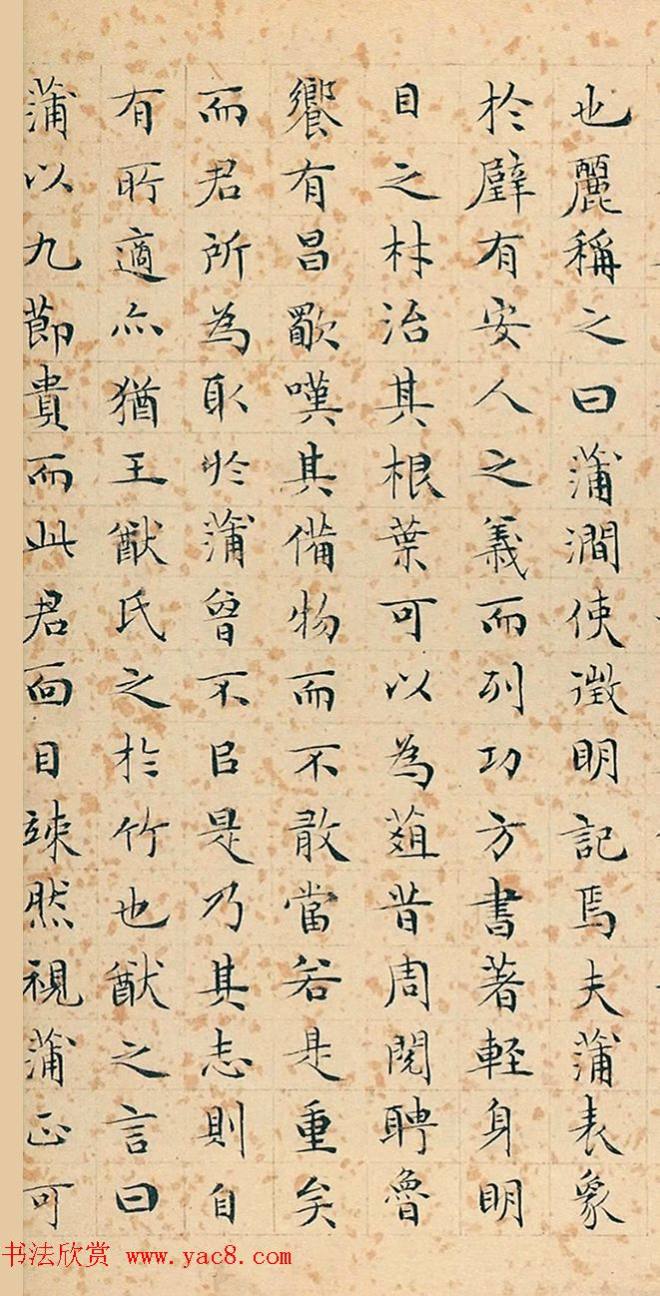 也麗稱之曰蒲澗使徵明記焉夫蒲表象
於璧有安人之義而列功方書著輕身明
目之林治其根葉可以為葅昔周閱聘魯
饗有昌歜嘆其備物而不敢當若是重矣
而君所為取於蒲曾不㠯是乃其志則自
有所適亦猶王猷氏之於竹也猷之言曰
蒲以九節貴而此君面目竦然視蒲正可
书法欣赏 www.yac8.com